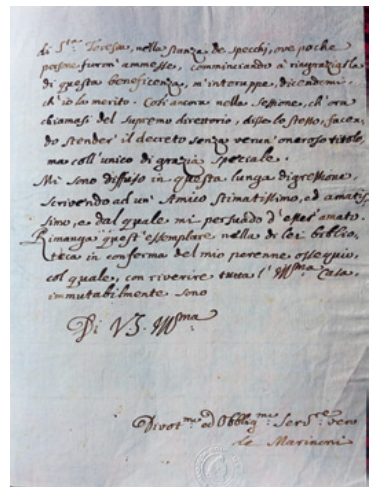 di S.ta Teresa, nella stanza de specchi, ove poche
persone furon' ammesse, comminciando à ringraziarla
di questa beneficenza, m'interuppe, dicendomi
ch'io la merito. Così ancora nella Sessione, ch'ora
chiamasi del Supremo direttorio, disse lo stesso, facen-
do stender' il decreto senza verun' oneroso titolo,
ma coll'unico di grazia speziale.
Mi sono diffuso in questa lunga digressione,
scrivendo ad un' Amico stimatissimo, ed amatis-
simo, e dal quale mi persuado d'esser' amato.
Rimanga quest'essemplare nella di lei biblio-
teca in conferma del mio perenne ossequio,
col quale, con riverire tutta l'Ill.ma Casa,
immutabilmente sono
Di V.S. Ill.ma
Divot.mo ed Obblig.mo Serv.re vero
de Marinoni